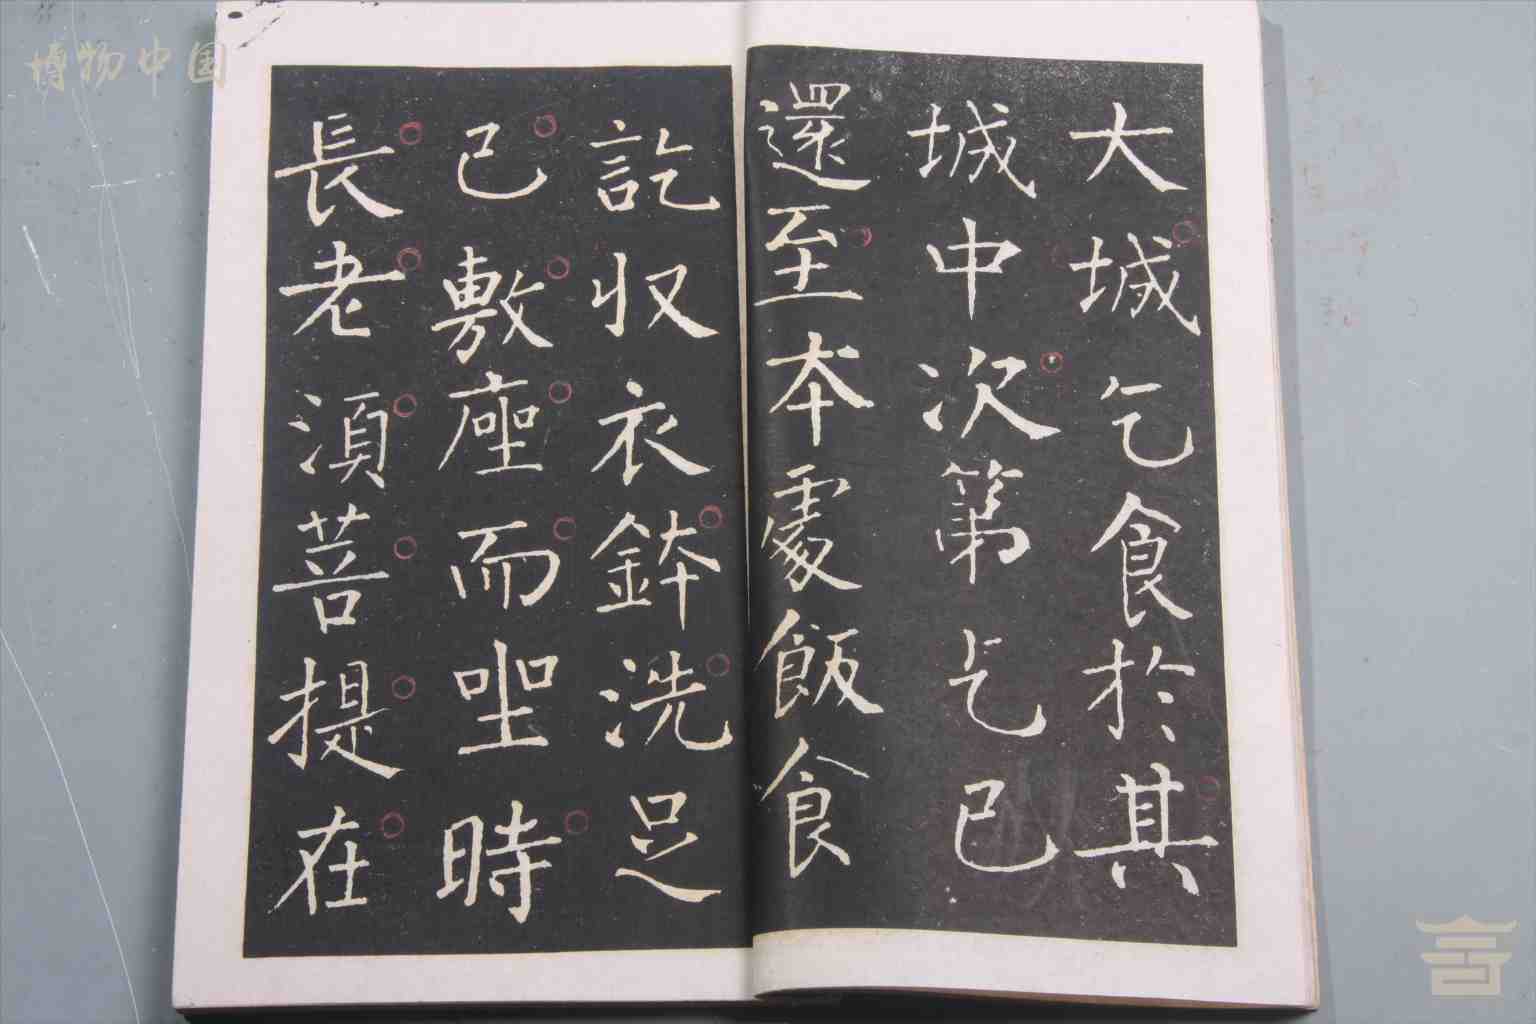 大城乞食於其
城中次第乞已
還至本處飯食
訖收衣鉢洗足
已敷座而坐時
長老須菩提在
博物中国